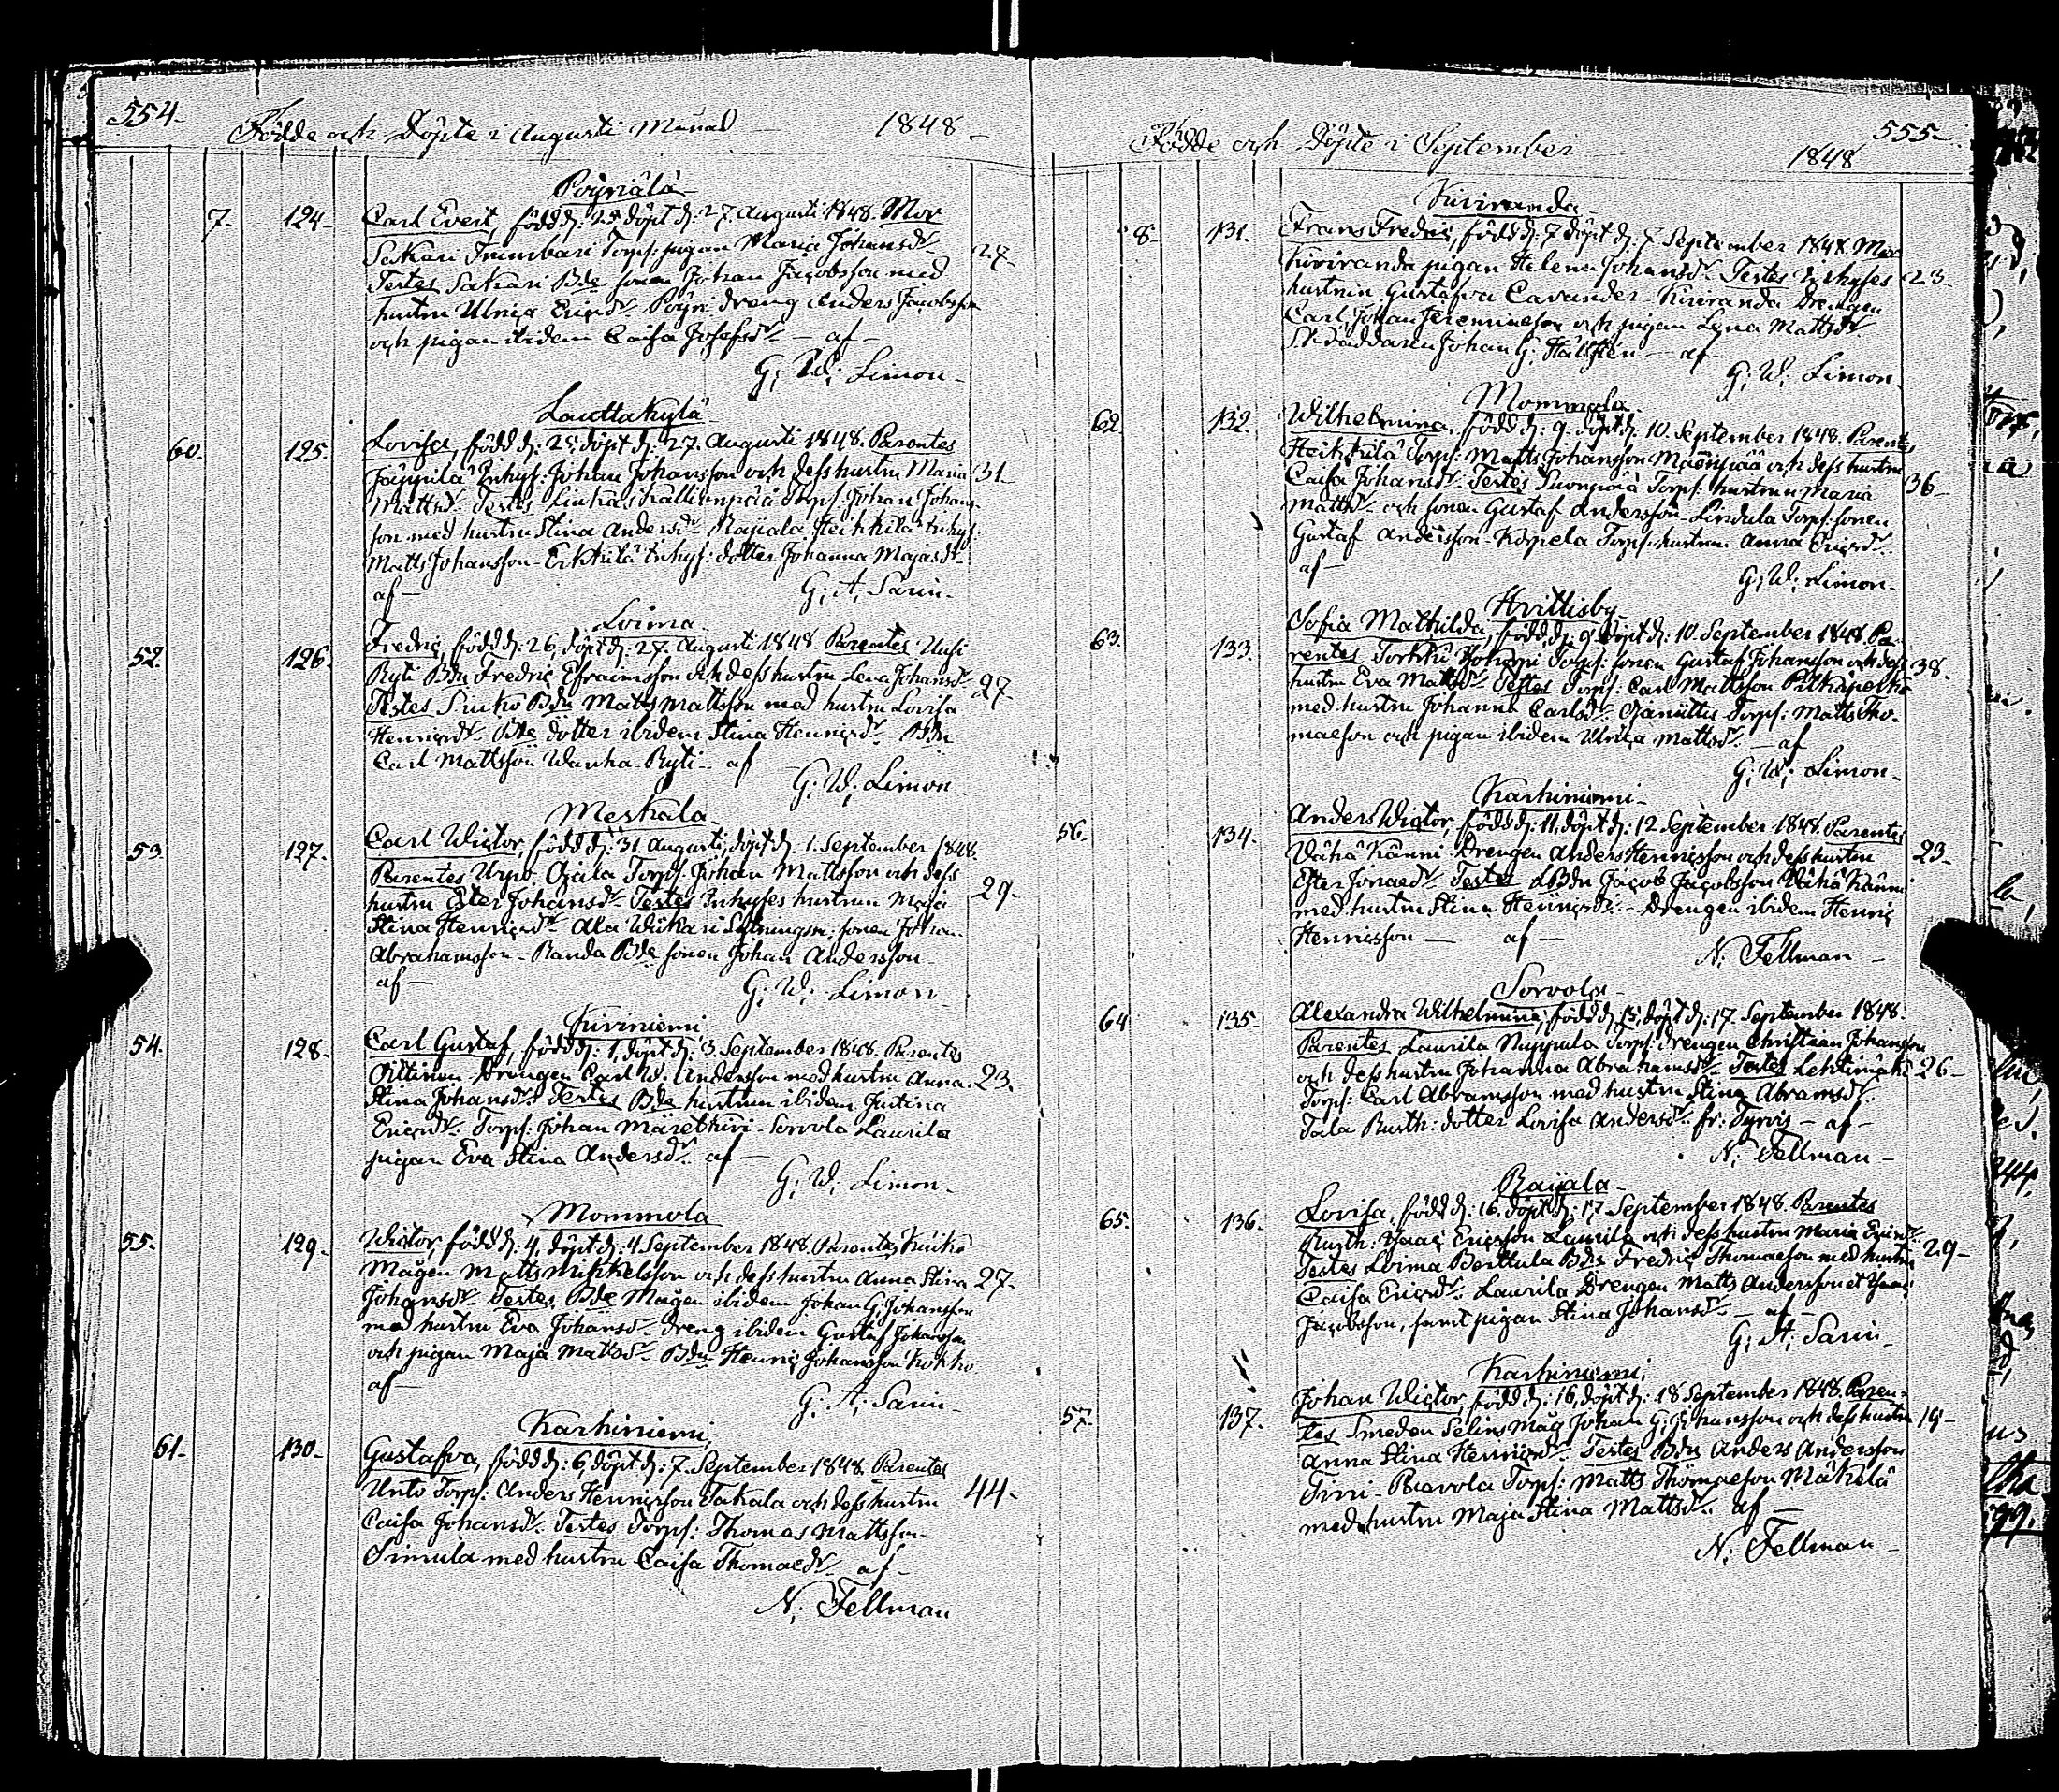 554
Födde och Döpte i Augusti Månad 1848
7. 124.
Carl Evert, född d: döpt d: 27 Augusti 1848. Mor
Sakari Torp: pigan Maria Johansdr 27
Testes Sakari Bde sonen Johan Jacobsson med
hustru Ulrica Ericsdr dreng Anders Jacobsson
och pigan ibidem Caisa Josefsdr af
G: W: Limon
Lauttakylä
60. 125. Lovisa, född d: 25, döpt d: 27. Augusti 1848. Parentes
Jäppilä Inhys: Johan Johansson och dess hustru Maria 31
Mattsdr Testes Torp: Johan Johans-
son med hustru Stina Andersdr Raijala Heikkilä Inhys:
Matts Johansson - Erkkilä Inhys: dotter Johanna
af G: A: Sarin
Loima
52. 126. Fredric, född d: 26, döpt d: 27. Augusti 1848. Parentes Uusi
Ryti Bdn Fredric Efraimsson och dess hustru Lena Johansdr 27
Testes Bdn Matts Mattsson med hustru Lovisa
Henricsdr Bde dotter ibidem Stina Henricsdr Bdn
Carl Mattsson Wanha-Ryti af
G: W: Limon
Meskala
53. 127. Carl Wictor, född d: 31. Augusti, döpt d. 1. September 1848.
Parentes Ojala Torp: Johan Mattsson och dess
hustru Ester Johansdr Testes Inhyses hustrun Maja
Stina Henricsdr Ala Wiikari Sytningsm: sonen Johan
Abrahamsson - Randa Bde sonen Johan Andersson
af G: W: Limon
Kiviniemi
54. 128. Carl Gustaf, född d: 1, döpt d: 3. September 1848. Parentes
Piltinen Drengen Carl W. Andersson med hustru Anna 23.
Stina Johansdr Testes Bde hustrun ibidem Justina
Ericsdr Torp: Johan - Sorvola Laurila
pigan Eva Stina Andersdr af
G: W: Limon
Mommola
55. 129. Wictor, född d: 4, döpt d: 4 September 1848. Parentes
Mågen Matts Mikkelsson och dess hustru Anna Stina 27.
Johansdr Testes Bde Mågen ibidem Johan G: Johansson
med hustru Eva Johansdr dreng ibidem Gustaf Johansson
och pigan Maja Mattsdr Bdn Henric Johansson Kokko
af G: A: Sarin
Karhiniemi
61. 130. Gustafva, född d: 6, döpt d: 7. September 1848. Parentes
Unto Torp: Anders Henricsson Takala och dess hustru 44.
Caisa Johansdr Testes Torp: Thomas Mattsson
Simula med hustru Caisa Thomaedr af
N: Fellman
555
Födde och Döpte i September 1848
Kiviranda
8. 131. Frans Fredric, född d: 7 döpt d: September 1848. Mor
Kiviranda pigan Helena Johansdr Testes Inhyses 23
hustrun Gustafva Cavander - Kiviranda Drengen
Carl Johan Jeremiaeson och pigan Lena Mattsdr
Johan G: af
G: W: Limon
Mommola
62. 132. Wilhelmina, född d: 9. döpt d: 10. September 1848. Parentes
Heikkilä Torp: Matts Johansson Mäenpää och dess hustru
Caisa Johansdr Testes Torp: hustrun Maria 36
Mattsdr och sonen Gustaf Andersson - Lindula Torp: sonen
Gustaf Andersson - Korpela Torp: hustrun Anna Ericsdr
af G: W: Limon
Kvittisby
63. 133. Sofia Mathilda, född d: 9 döpt d: 10. September 1848. Pa-
rentes Torp: sonen Gustaf Johansson och dess 38.
hustru Eva Mattsdr Testes Torp: Carl Mattsson
med hustru Johanna Carlsdr Torp: Matts Tho-
maeson och pigan ibidem Ulrica Mattsdr af
G: W: Limon
Karhiniemi
56. 134. Anders Wictor, född d: 11, döpt d: 12 September 1848. Parentes
Vähä Känni Drengen Anders Henricsson och dess hustru 23
Ester Jonaedr Testes Bdn Jacob Jacobsson Vähä Känni
med hustru Stina Henricsdr Drengen ibidem Henric
Henricsson af
N: Fellman
Sorvola
64. 135. Alexandra Wilhelmina, född d: 15, döpt d: 17. September 1848.
Parentes Laurila Nuppula Torp: Drengen Christian Johansson
och dess hustru Johanna Abrahamsdr Testes Lehtimäki 26
Torp: Carl Abramsson med hustru Stina Abramsdr
Tala Rusth: dotter Lovisa Andersdr fr: Tyrvis af
N: Fellman
Raijala
65. 136. Lovisa, född d: 16, döpt d: 17 September 1848. Parentes
Rusth: Isaac Ericsson Laurila och dess hustru Maria Ericsdr 29
Testes Loima Berttula Bdn Fredric Thomaeson med hustru
Caisa Ericsdr Laurila Drengen Matts Andersson et
Jacobsson, samt pigan Stina Johansdr af
G: A: Sarin
Karhiniemi
57. 137. Johan Wictor, född d: 16, döpt d: 18 September 1848. Paren-
tes Smeden Selins Måg Johan G: Johansson och dess hustru 19
Anna Stina Henricsdr Testes Bdn Anders Andersson
- Ravola Torp: Matts Thomaeson Mäkelä
med hustru Maja Stina Mattsdr af
N: Fellman